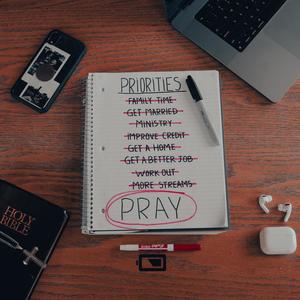 PRIORITIES
FAMILY TIME
GET MARRIED
MINISTRY
IMPROVE CREDIT
GET A HOME
GET A BETTER JOB
WORK OUT
MORE STREAMS
PRAY
HOLY
BIBLE